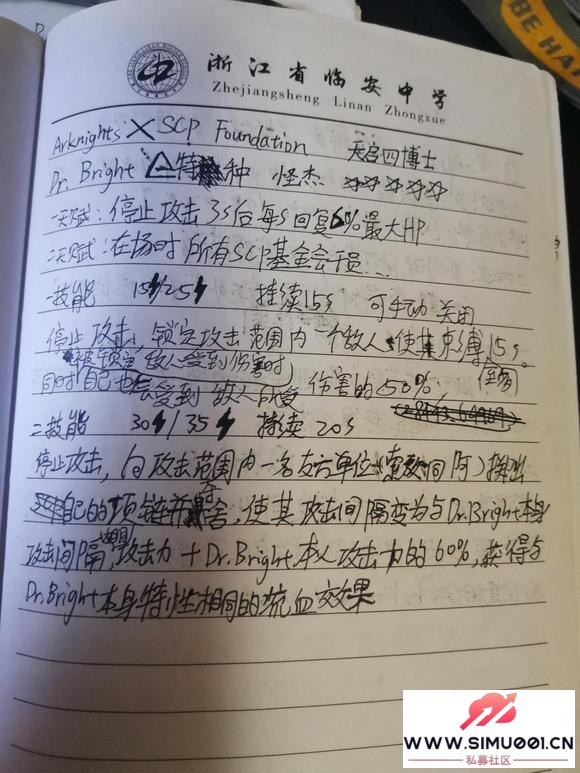 BE HA
浙江省临安中学
Zhejiangsheng Linan Zhongxue
Arknights X SCP Foundation 天启四博士
Dr. Bright 特种 怪杰 ☆☆☆☆☆
一天赋：停止攻击3s后每s回复6%最大HP
二天赋：在场时所有SCP基金会干员...
一技能 15/25 持续15s 可手动关闭
停止攻击，锁定攻击范围内一个敌人，使其束缚15s。
被锁定敌人受到伤害时
同时自己也会受到敌人所受伤害的50%
二技能 30/35 持续20s
停止攻击，向攻击范围内一名友方单位（索敌同阿）掷出
自己的项链并寄宿，使其攻击间隔变为与Dr.Bright本身
攻击间隔，攻击力+Dr.Bright本人攻击力的60%，获得与
Dr.Bright本身特性相同的流血效果
WWW.SIMU001.CN
私募社区